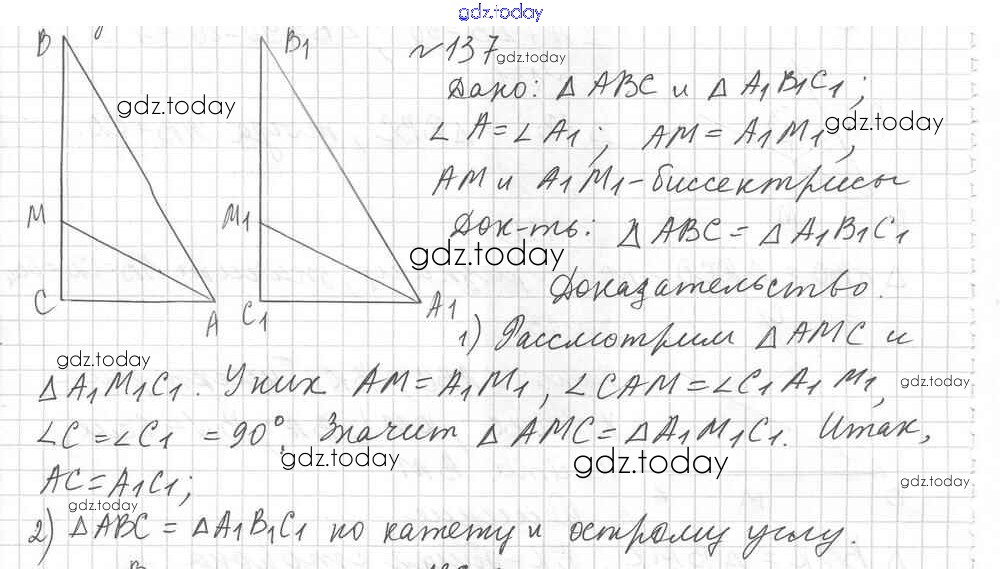 gdz.today
B B1 №137 gdz.today
Дано: △ABC и △A1B1C1;
gdz.today
∠A=∠A1; AM=A1M1;
gdz.today
AM и A1M1-биссектрисы
M M1 Док-ть: △ABC=△A1B1C1
gdz.today
Доказательство.
C A C1 A1
1) Рассмотрим △AMC и
gdz.today
△A1M1C1. У них AM=A1M1, ∠CAM=∠C1A1M1,
gdz.today
∠C=∠C1=90°. Значит △AMC=△A1M1C1. Итак,
gdz.today gdz.today
AC=A1C1;
gdz.today
gdz.today
2) △ABC=△A1B1C1 по катету и острому углу.